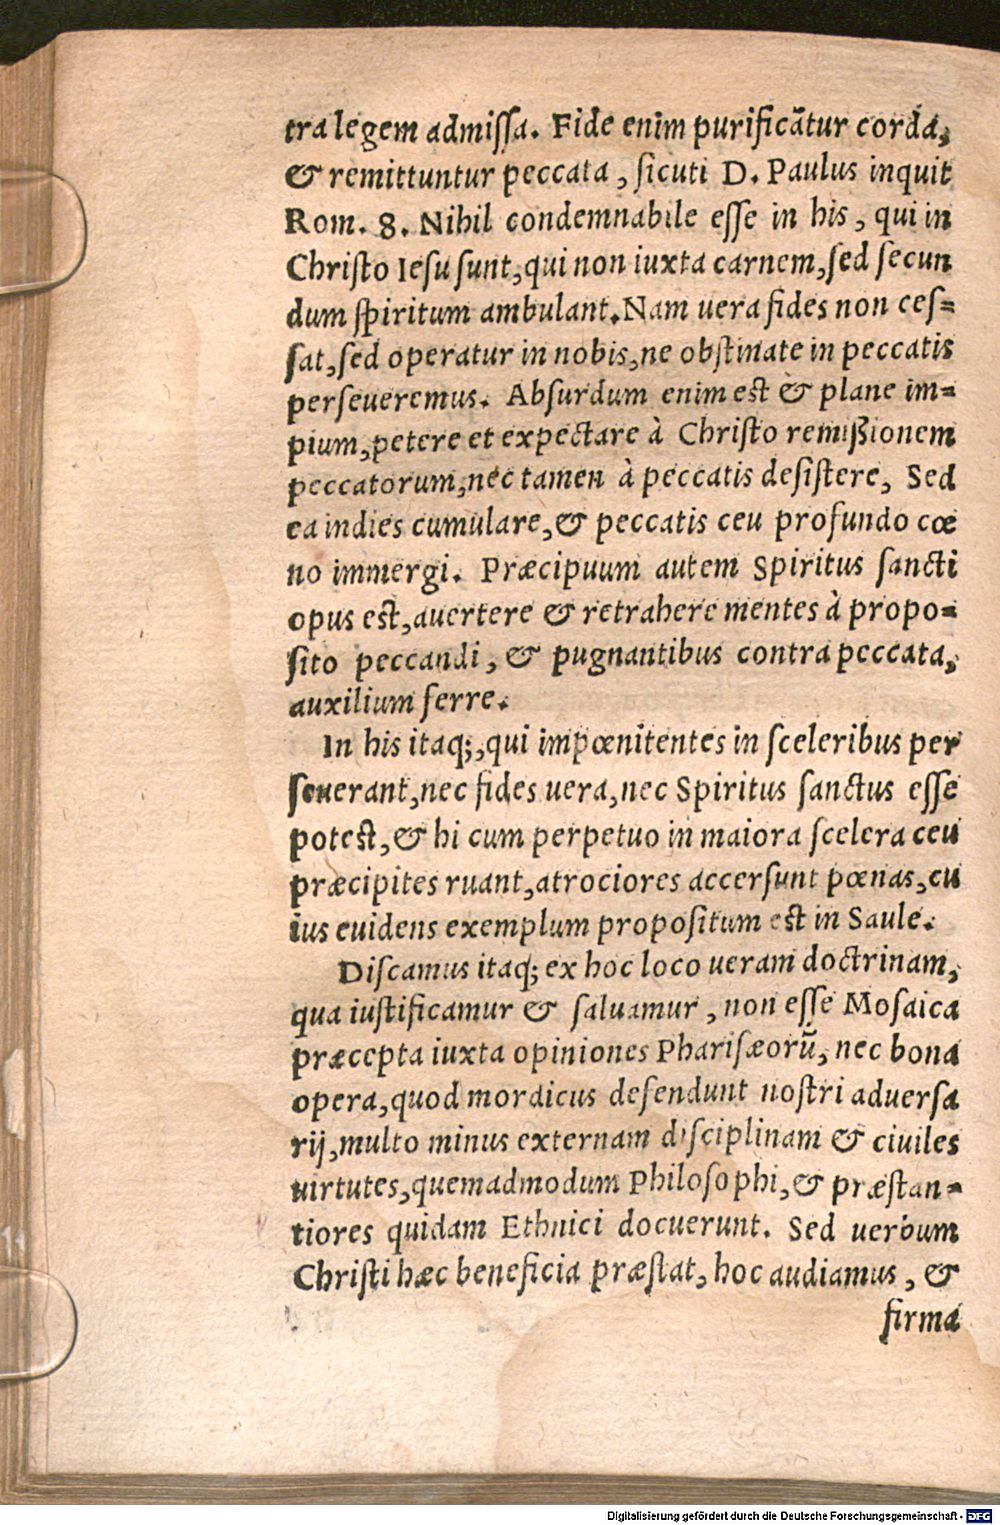 tra legem admissa. Fide enim purificãtur corda,
& remittuntur peccata, sicuti D. Paulus inquit
Rom. 8. Nihil condemnabile esse in his, qui in
Christo Iesu sunt, qui non iuxta carnem, sed secun
dum spiritum ambulant. Nam uera fides non ces=
sat, sed operatur in nobis, ne obstinate in peccatis
perseueremus. Absurdum enim est & plane im=
pium, petere et expectare à Christo remißionem
peccatorum, nec tamen à peccatis desistere, Sed
ea indies cumulare, & peccatis ceu profundo cœ
no immergi. Præcipuum autem Spiritus sancti
opus est, auertere & retrahere mentes à propo=
sito peccandi, & pugnantibus contra peccata,
auxilium ferre.
In his itaq;, qui impœnitentes in sceleribus per
seuerant, nec fides uera, nec Spiritus sanctus esse
potest, & hi cum perpetuo in maiora scelera ceu
præcipites ruant, atrociores accersunt pœnas, cu
ius euidens exemplum propositum est in Saule.
Discamus itaq; ex hoc loco ueram doctrinam,
qua iustificamur & saluamur, non esse Mosaica
præcepta iuxta opiniones Pharisæorũ, nec bona
opera, quod mordicus defendunt nostri aduersa
rij, multo minus externam disciplinam & ciuiles
uirtutes, quemadmodum Philosophi, & præstan=
tiores quidam Ethnici docuerunt. Sed uerbum
Christi hæc beneficia præstat, hoc audiamus, &
firma
Digitalisierung gefördert durch die Deutsche Forschungsgemeinschaft - DFG